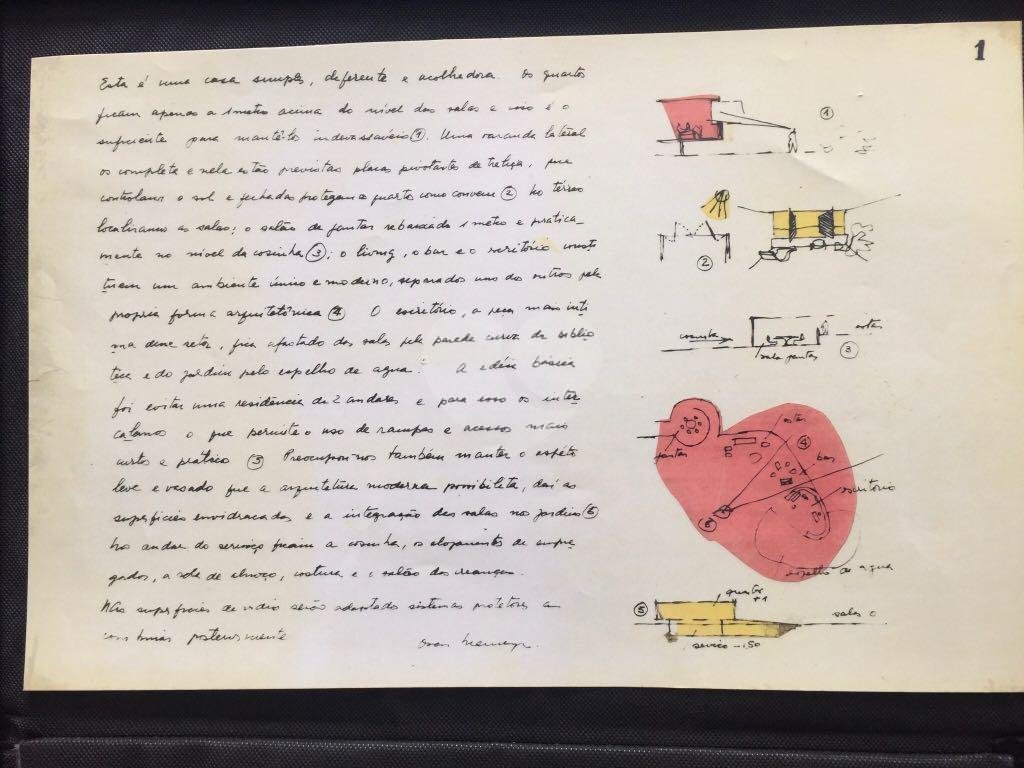 1
Esta é uma casa simples, diferente e acolhedora. Os quartos
ficam apenas a 1 metro acima do nível das salas e isso é o
suficiente para mantê-los indevassáveis ①. Uma varanda lateral
os completa e nela estão previstas placas pivotantes de treliça, que
controlam o sol e fechadas protegem o quarto como convem ② No térreo
localizamos as salas; o salão de jantar rebaixado 1 metro e pratica-
mente no nível da cosinha ③; o living, o bar e o escritório consti
tuem um ambiente único e moderno, separados uns dos outros pela
propria forma arquitetônica ④ O escritório, a peça mais inti
ma desse setor, fica afastado das salas pela parede curva da biblio
teca e do jardim pelo espelho de agua. A idéia básica
foi evitar uma residência de 2 andares e para isso os inter
calamos o que permite o uso de rampas e acessos mais
curtos e prático ⑤ Preocupou-nos também manter o aspéto
leve e vasado que a arquitetura moderna possibilita, daí as
superfícies envidraçadas e a integração das salas no jardim ⑥
No andar do serviço ficam a cosinha, os alojamentos de empre
gados, a sala de almoço, costura e o salão das crianças.
Nas superfícies de vidro serão adaptados sistemas protetores a
combinar posteriormente
Oscar Niemeyer.
①
②
cosinha
estar
sala jantar
③
jantar
estar
④
bar
escritório
⑥
espelho de agua
⑤
quartos +1
salas 0
serviço -1,50